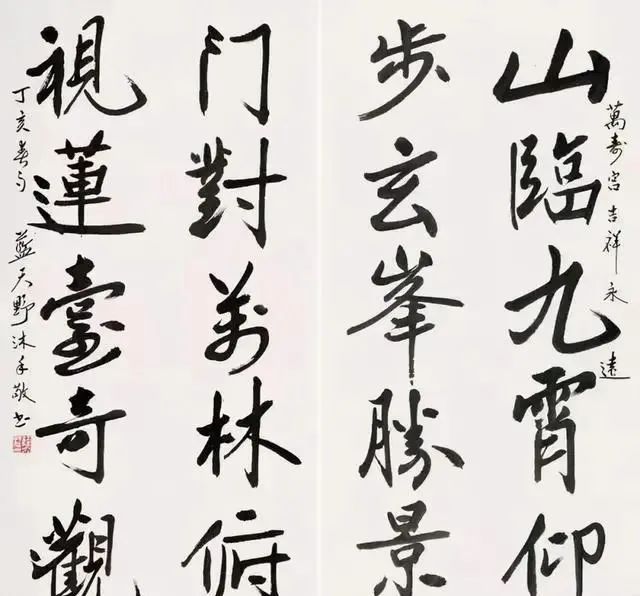 萬寿宮吉祥永遠
山臨九霄仰
步玄峯勝景
门對萬林俯
視蓮臺奇觀
丁亥春月 藍天野沐手敬书